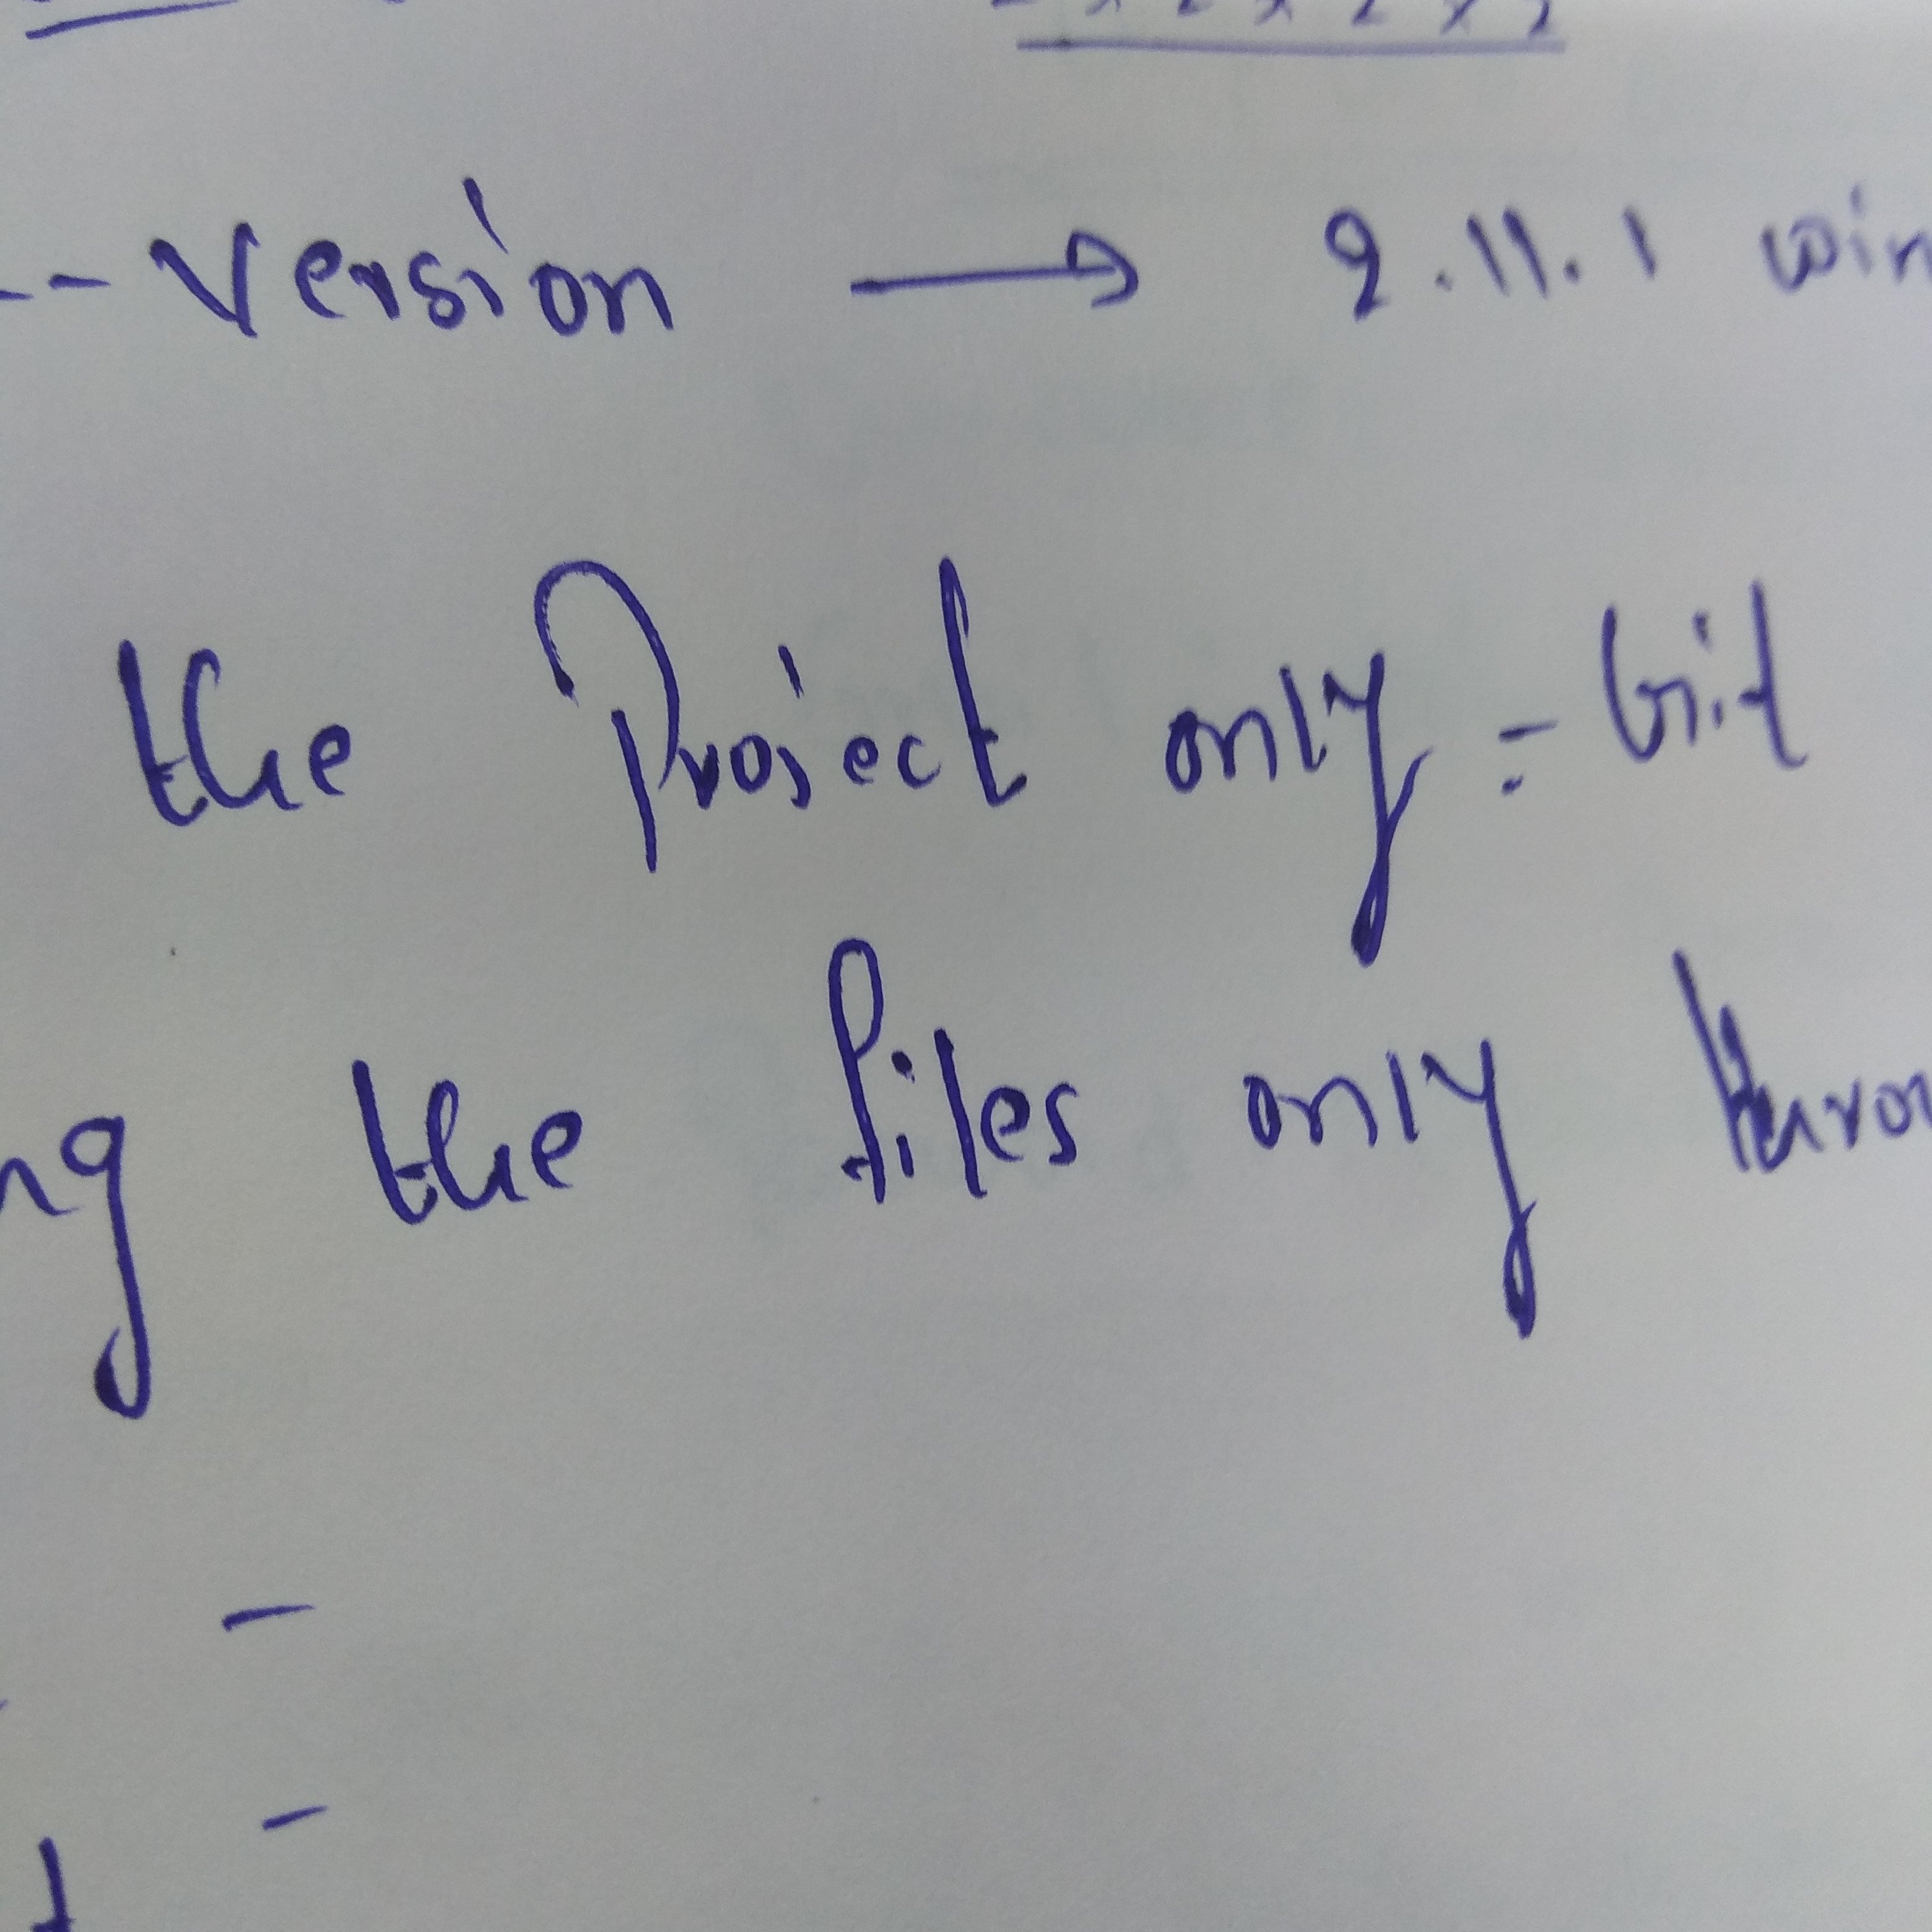 --version → 2.11.1 win
the Project only = Git
ng the files only throu